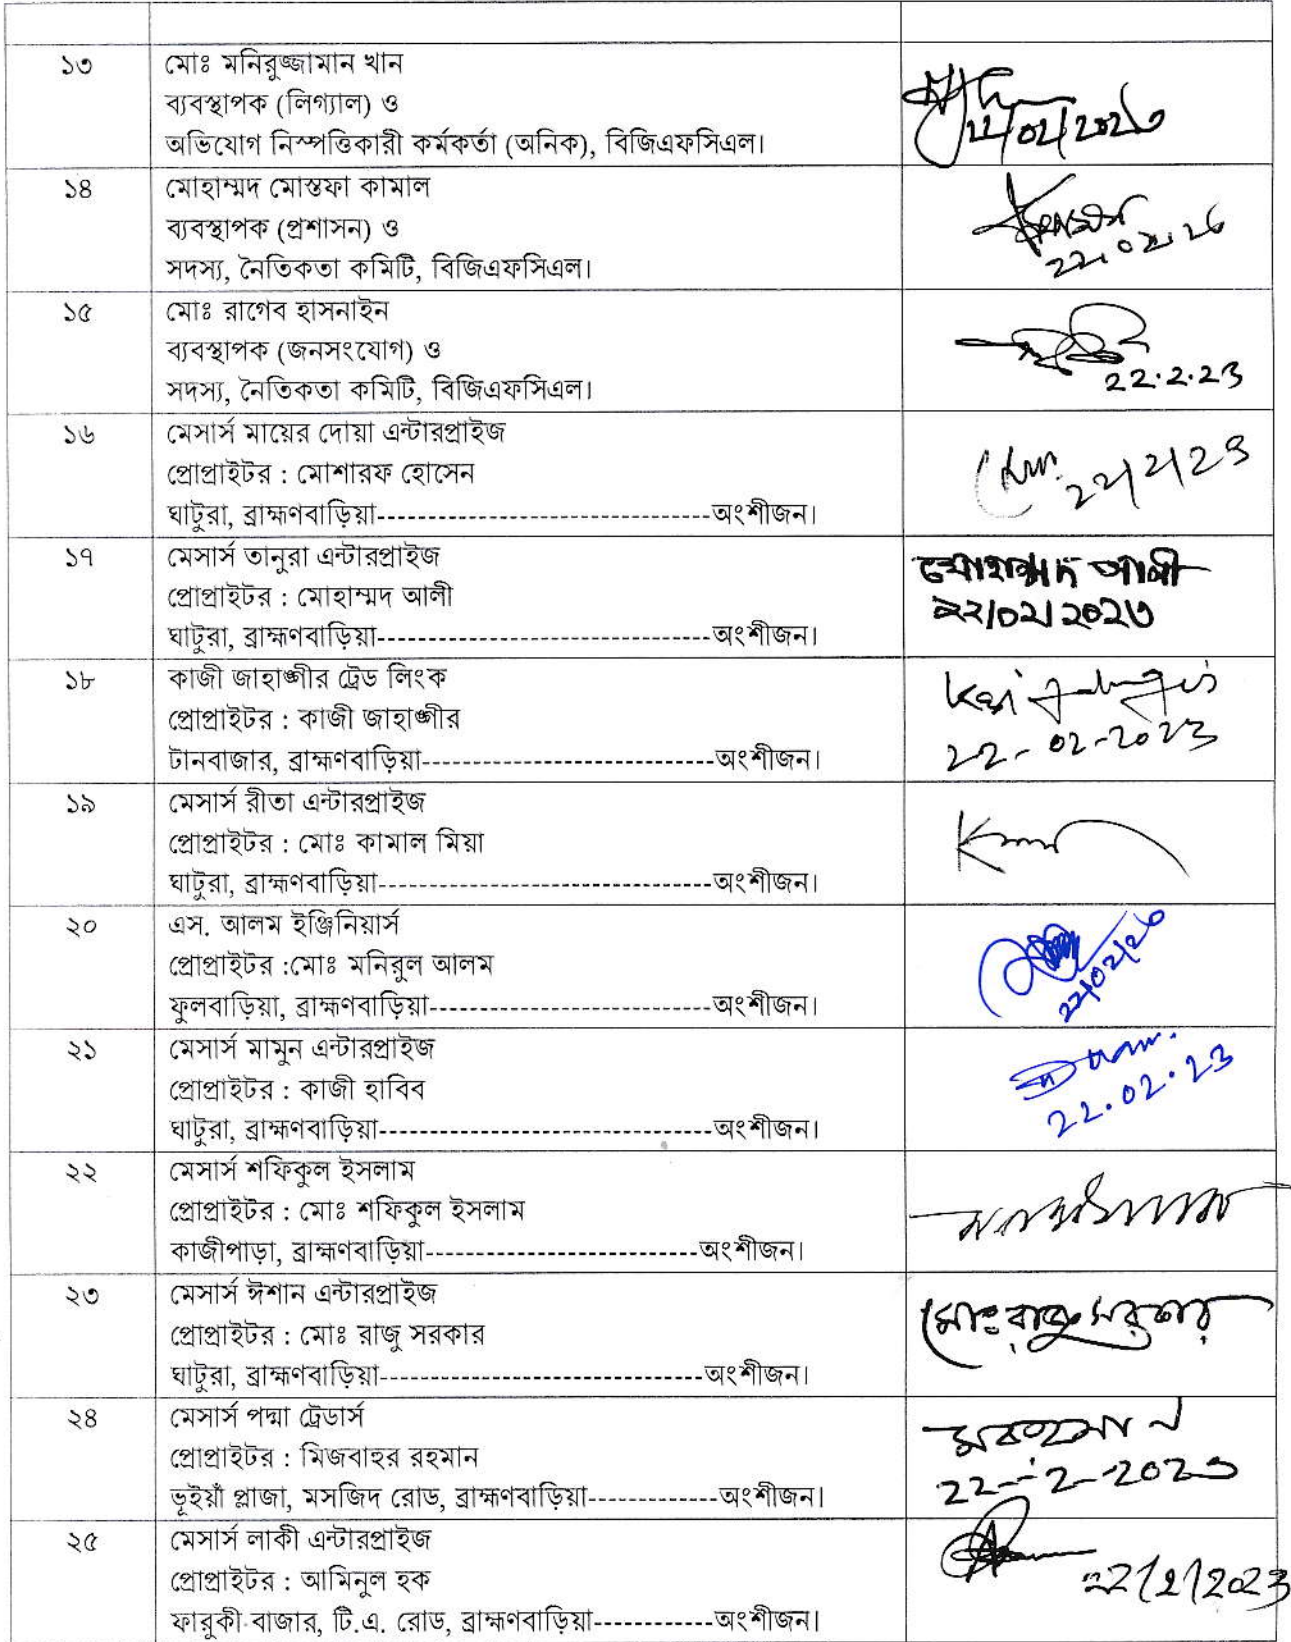 ১৩
মোঃ মনিরুজ্জামান খান
ব্যবস্থাপক (লিগ্যাল) ও
অভিযোগ নিস্পত্তিকারী কর্মকর্তা (অনিক), বিজিএফসিএল।
22/02/2023
১৪
মোহাম্মদ মোস্তফা কামাল
ব্যবস্থাপক (প্রশাসন) ও
সদস্য, নৈতিকতা কমিটি, বিজিএফসিএল।
১৫
মোঃ রাগেব হাসনাইন
ব্যবস্থাপক (জনসংযোগ) ও
সদস্য, নৈতিকতা কমিটি, বিজিএফসিএল।
22.2.23
১৬
মেসার্স মায়ের দোয়া এন্টারপ্রাইজ
প্রোপ্রাইটর : মোশারফ হোসেন
ঘাটুরা, ব্রাহ্মণবাড়িয়া---------------------------------অংশীজন।
22/2/23
১৭
মেসার্স তানুরা এন্টারপ্রাইজ
প্রোপ্রাইটর : মোহাম্মদ আলী
ঘাটুরা, ব্রাহ্মণবাড়িয়া---------------------------------অংশীজন।
মোহাম্মদ আলী
২২/০২/২০২৩
১৮
কাজী জাহাঙ্গীর ট্রেড লিংক
প্রোপ্রাইটর : কাজী জাহাঙ্গীর
টানবাজার, ব্রাহ্মণবাড়িয়া-----------------------------অংশীজন।
22-02-2023
১৯
মেসার্স রীতা এন্টারপ্রাইজ
প্রোপ্রাইটর : মোঃ কামাল মিয়া
ঘাটুরা, ব্রাহ্মণবাড়িয়া---------------------------------অংশীজন।
২০
এস. আলম ইঞ্জিনিয়ার্স
প্রোপ্রাইটর :মোঃ মনিরুল আলম
ফুলবাড়িয়া, ব্রাহ্মণবাড়িয়া----------------------------অংশীজন।
২১
মেসার্স মামুন এন্টারপ্রাইজ
প্রোপ্রাইটর : কাজী হাবিব
ঘাটুরা, ব্রাহ্মণবাড়িয়া---------------------------------অংশীজন।
22.02.23
২২
মেসার্স শফিকুল ইসলাম
প্রোপ্রাইটর : মোঃ শফিকুল ইসলাম
কাজীপাড়া, ব্রাহ্মণবাড়িয়া---------------------------অংশীজন।
২৩
মেসার্স ঈশান এন্টারপ্রাইজ
প্রোপ্রাইটর : মোঃ রাজু সরকার
ঘাটুরা, ব্রাহ্মণবাড়িয়া--------------------------------অংশীজন।
মোঃ রাজু সরকার
২৪
মেসার্স পদ্মা ট্রেডার্স
প্রোপ্রাইটর : মিজবাহুর রহমান
ভূইয়াঁ প্লাজা, মসজিদ রোড, ব্রাহ্মণবাড়িয়া-------------অংশীজন।
22-2-2023
২৫
মেসার্স লাকী এন্টারপ্রাইজ
প্রোপ্রাইটর : আমিনুল হক
ফারুকী বাজার, টি.এ. রোড, ব্রাহ্মণবাড়িয়া------------অংশীজন।
22/2/2023